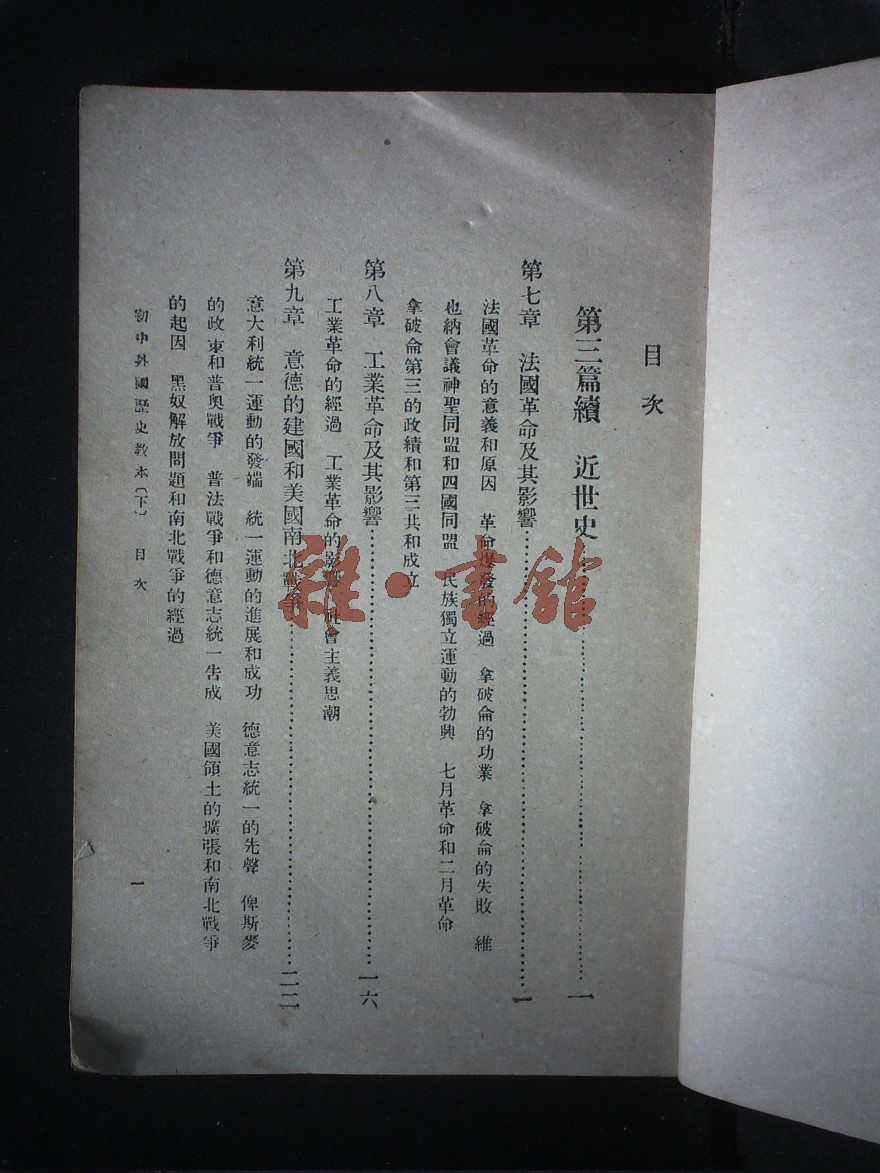 目次
第三篇續　近世史……一
第七章　法國革命及其影響……一
法國革命的意義和原因　革命爆發的經過　拿破侖的功業　拿破侖的失敗　維
也納會議神聖同盟和四國同盟　民族獨立運動的勃興　七月革命和二月革命
拿破侖第三的政績和第三共和成立
第八章　工業革命及其影響……一六
工業革命的經過　工業革命的影響　社會主義思潮
第九章　意德的建國和美國南北戰爭……二二
意大利統一運動的發端　統一運動的進展和成功　德意志統一的先聲　俾斯麥
的政柬和普奧戰爭　普法戰爭和德意志統一告成　美國領土的擴張和南北戰爭
的起因　黑奴解放問題和南北戰爭的經過
初中外國歷史教本〔下〕　目次
一
雜·書館